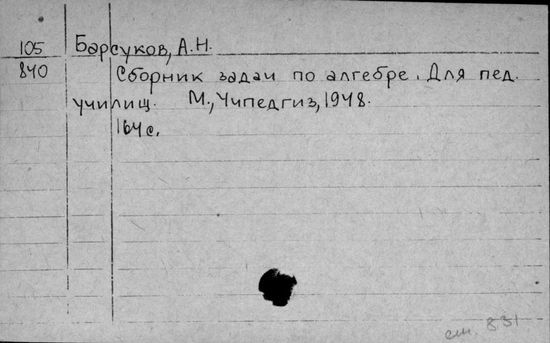 105 Барсуков, А.Н.
840 Сборник задач по алгебре. Для пед.
училищ. М., Учпедгиз, 1948.
164 с.
см. 831